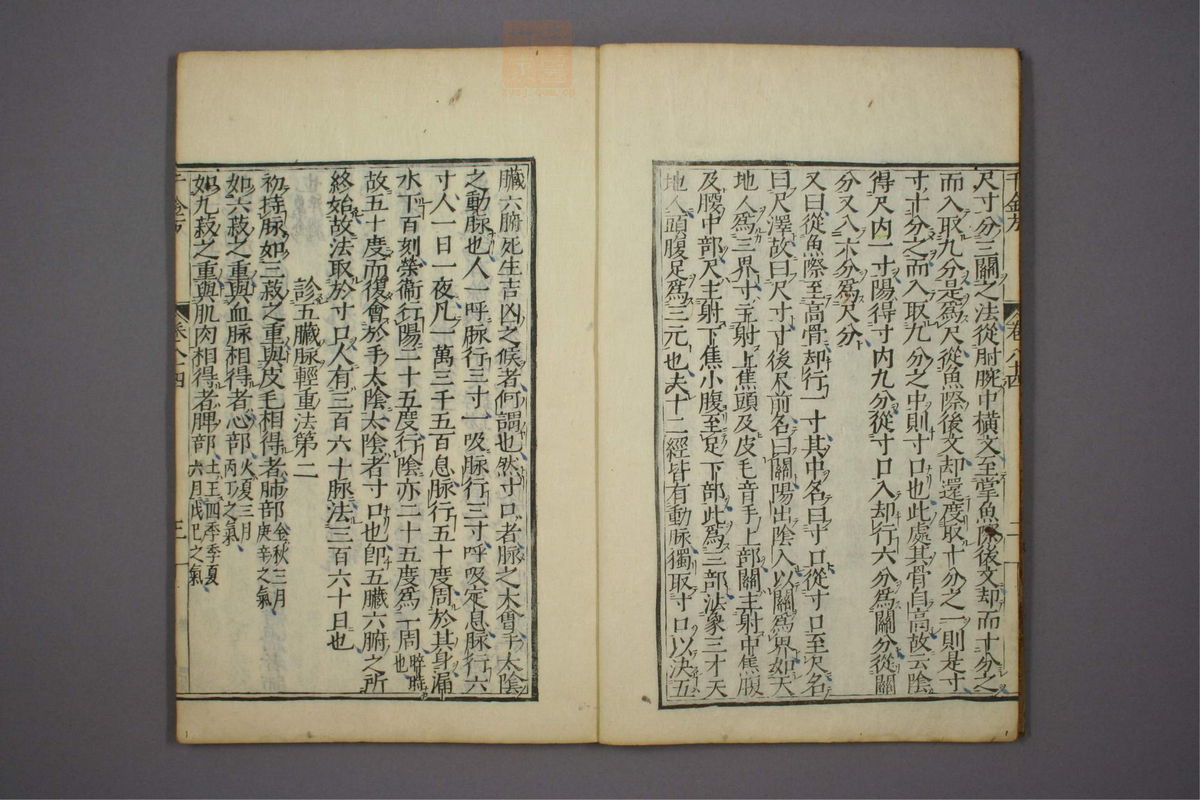 尺寸分三關之法從肘腕中橫文至掌魚際後文却而十分之
而入取九分是爲尺從魚際後文却還度取十分之一則是寸
寸十分之而入取九分之中則寸口也此處其骨自高故云陰
得尺内一寸陽得寸内九分從寸口入却行六分爲關分從關
分又入六分爲尺分
又曰從魚際至高骨却行一寸其中名曰寸口從寸口至尺名
曰尺澤故曰尺寸寸後尺前名曰關陽出陰入以關爲界如天
地人爲三界寸主射上焦頭及皮毛音手上部關主射中焦腹
及腰中部尺主射下焦小腹至足下部此爲三部法象三才天
地人頭腹足爲三元也夫十二經皆有動脉獨取寸口以決五
千金方
卷八十四
二
臟六腑死生吉凶之候者何謂也然寸口者脉之大會手太陰
之動脉也人一呼脉行三寸一吸脉行三寸呼吸定息脉行六
寸人一日一夜凡一萬三千五百息脉行五十度周於其身漏
水下百刻榮衛行陽二十五度行陰亦二十五度爲一周晬時也
故五十度而復會於手太陰太陰者寸口也卽五臟六腑之所
終始故法取於寸口人有三百六十脉法三百六十日也
診五臟脉輕重法第二
初持脉如三菽之重與皮毛相得者肺部金秋三月庚辛之氣
如六菽之重與血脉相得者心部火夏三月丙丁之氣
如九菽之重與肌肉相得者脾部土王四季季夏六月戊己之氣
千金方
卷八十四
三